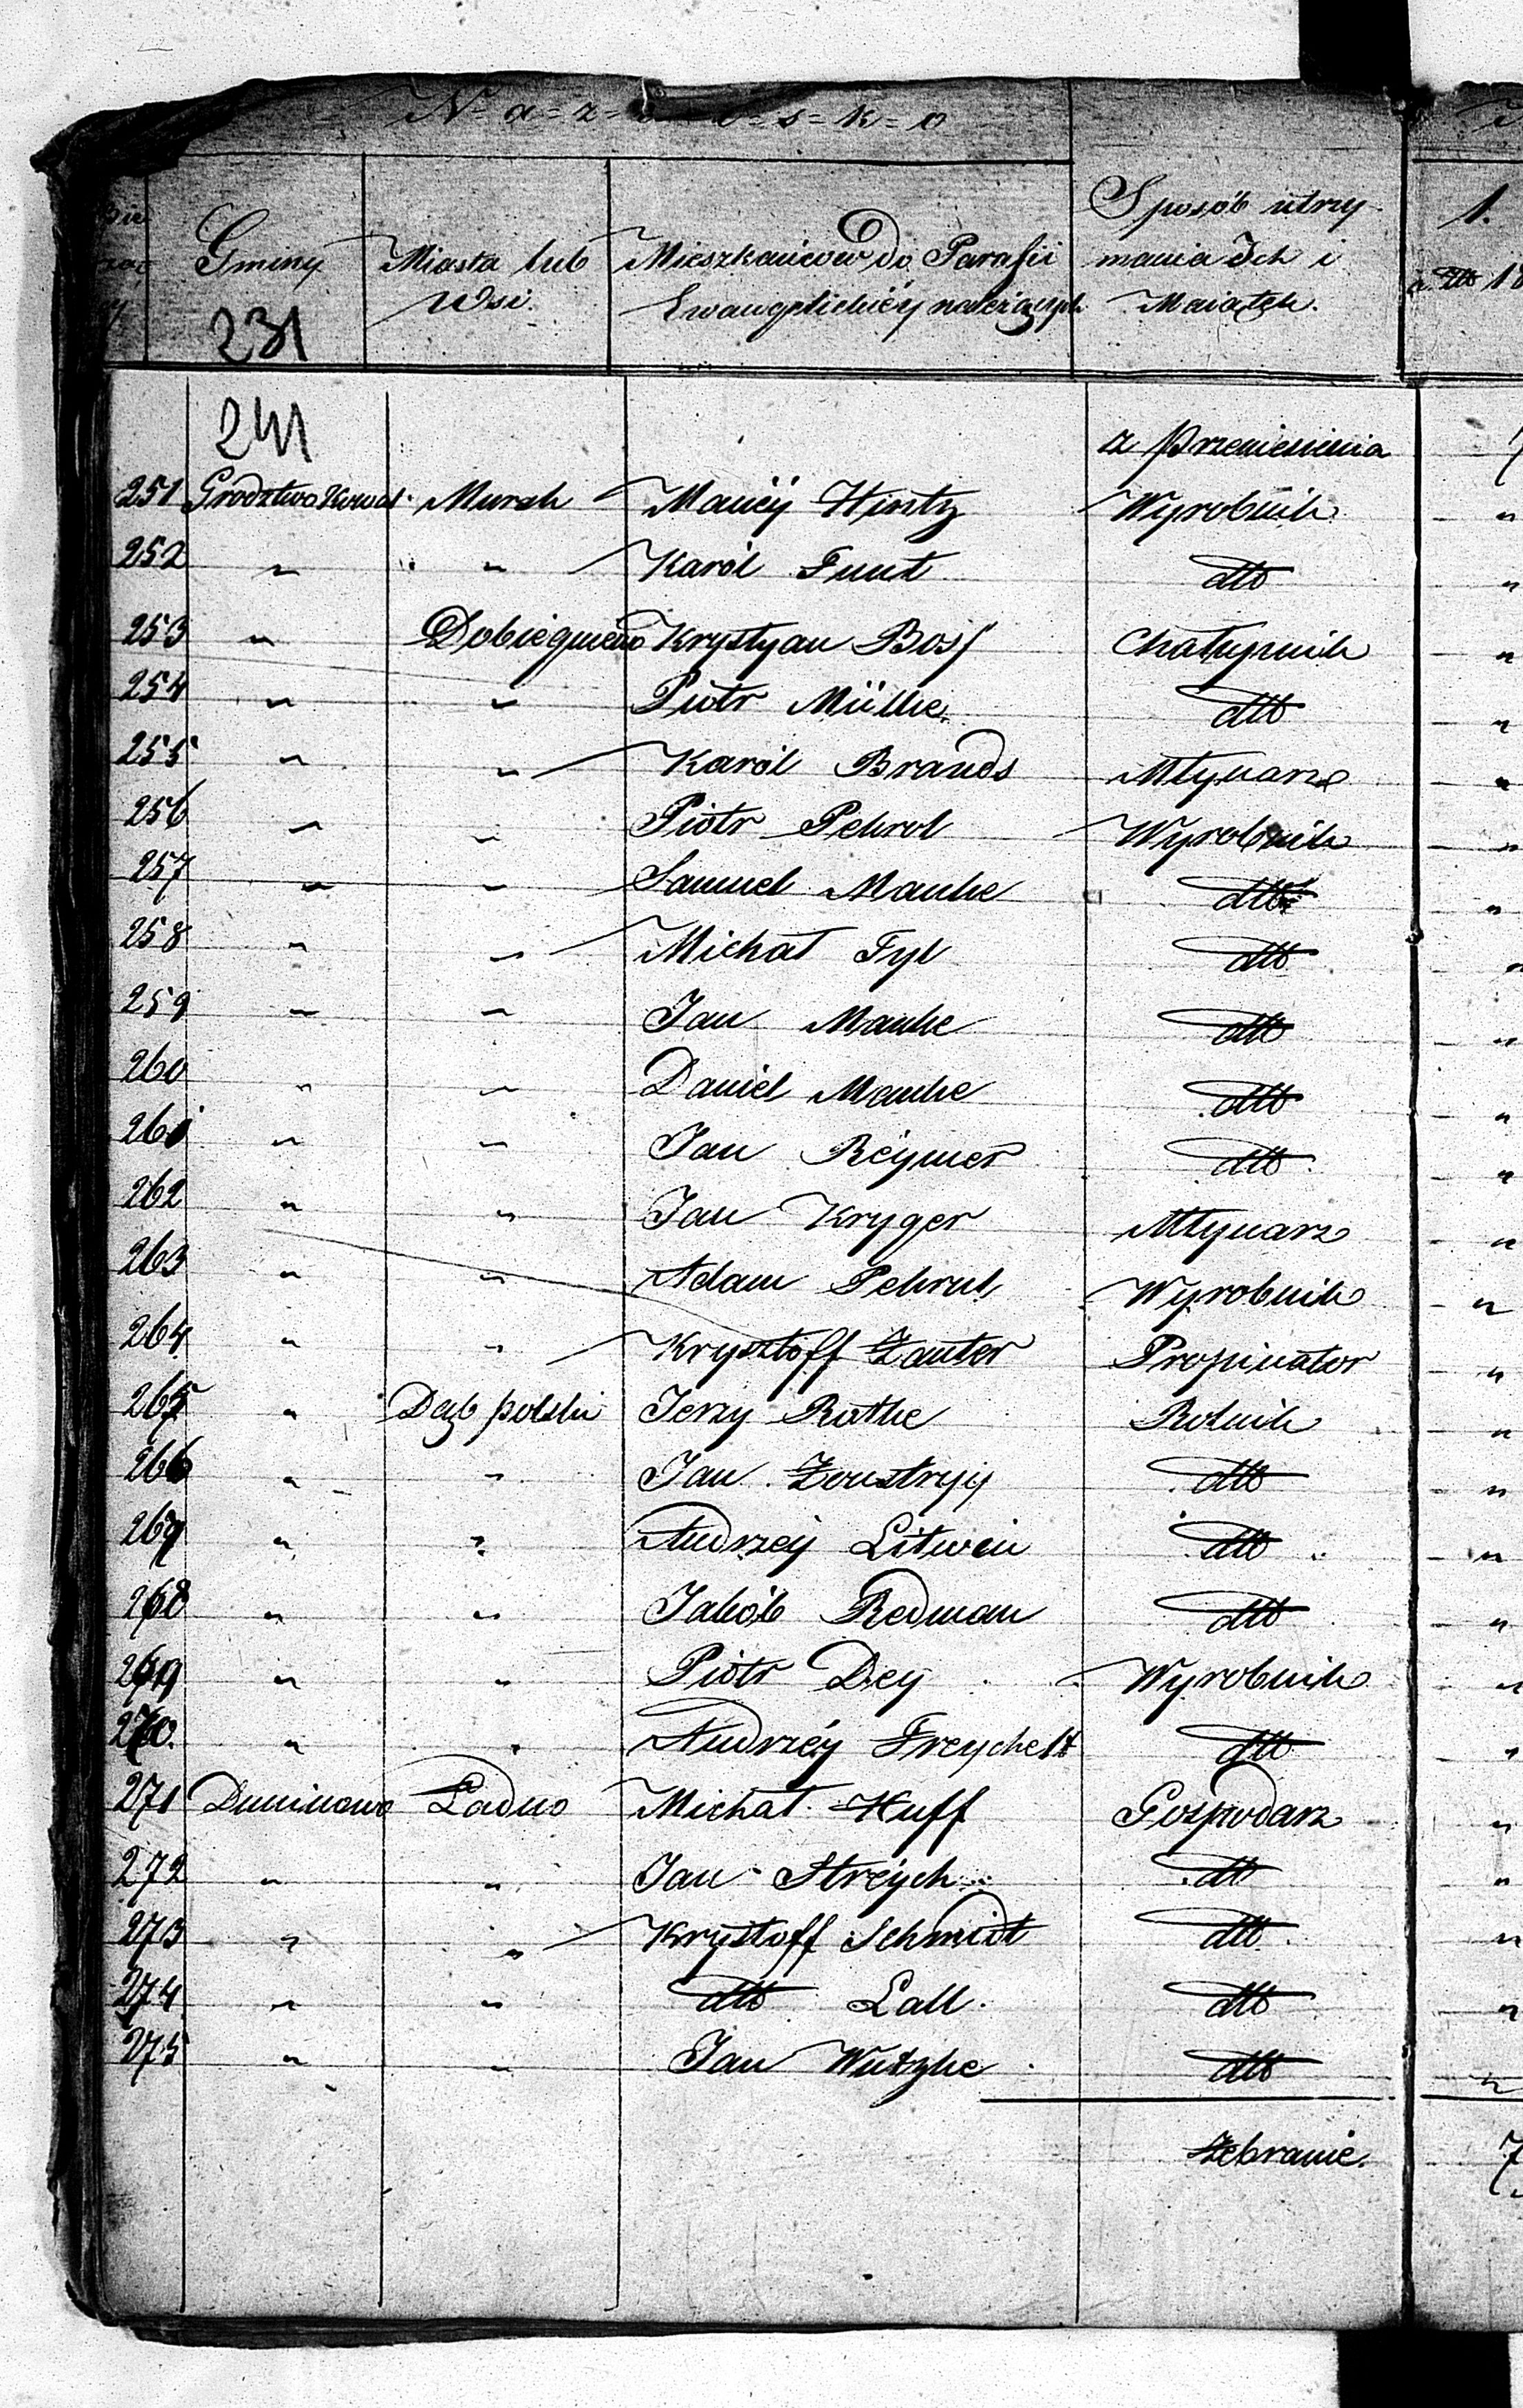 N=a=z= =s=k=o
Gminy Miasta lub Wsi. Mieszkańców do Parafii Ewangelickiéy należących Sposób utrzymania Ich i Maiątek. 1.
231
241
z Przeniesienia
251 Grodztwo Kowal Mursk Maciéy Hintz Wyrobnik "
252 " " Karól Funt dtto "
253 " Dobiegniewo Krystyan Boss Chałupnik "
254 " " Piotr Müllke dtto "
255 " " Karól Brands Młynarz "
256 " " Piotr Pekrol Wyrobnik "
257 " " Samuel Manke dtto "
258 " " Michał Tyl dtto "
259 " " Jan Manke dtto "
260 " " Daniel Manke dtto "
261 " " Jan Réymer dtto "
262 " " Jan Kryger Młynarz "
263 " " Adam Pekrul Wyrobnik "
264 " " Krysztoff Zauter Propinator "
265 " Dąb polski Jerzy Rathe Rolnik "
266 " " Jan dtto "
267 " " Andrzéy Litwin dtto "
268 " " Jakób Redman dtto "
269 " " Piotr Dey Wyrobnik "
270. " " Andrzéy Freychelt dtto "
271 Duninowo Ladno Michał Huff Gospodarz "
272 " " Jan Streych dto "
273 " " Krystoff Schmidt dtto "
274 " " dtto Lall. dtto "
275 " " Jan Wutzke dtto "
Zebranie.